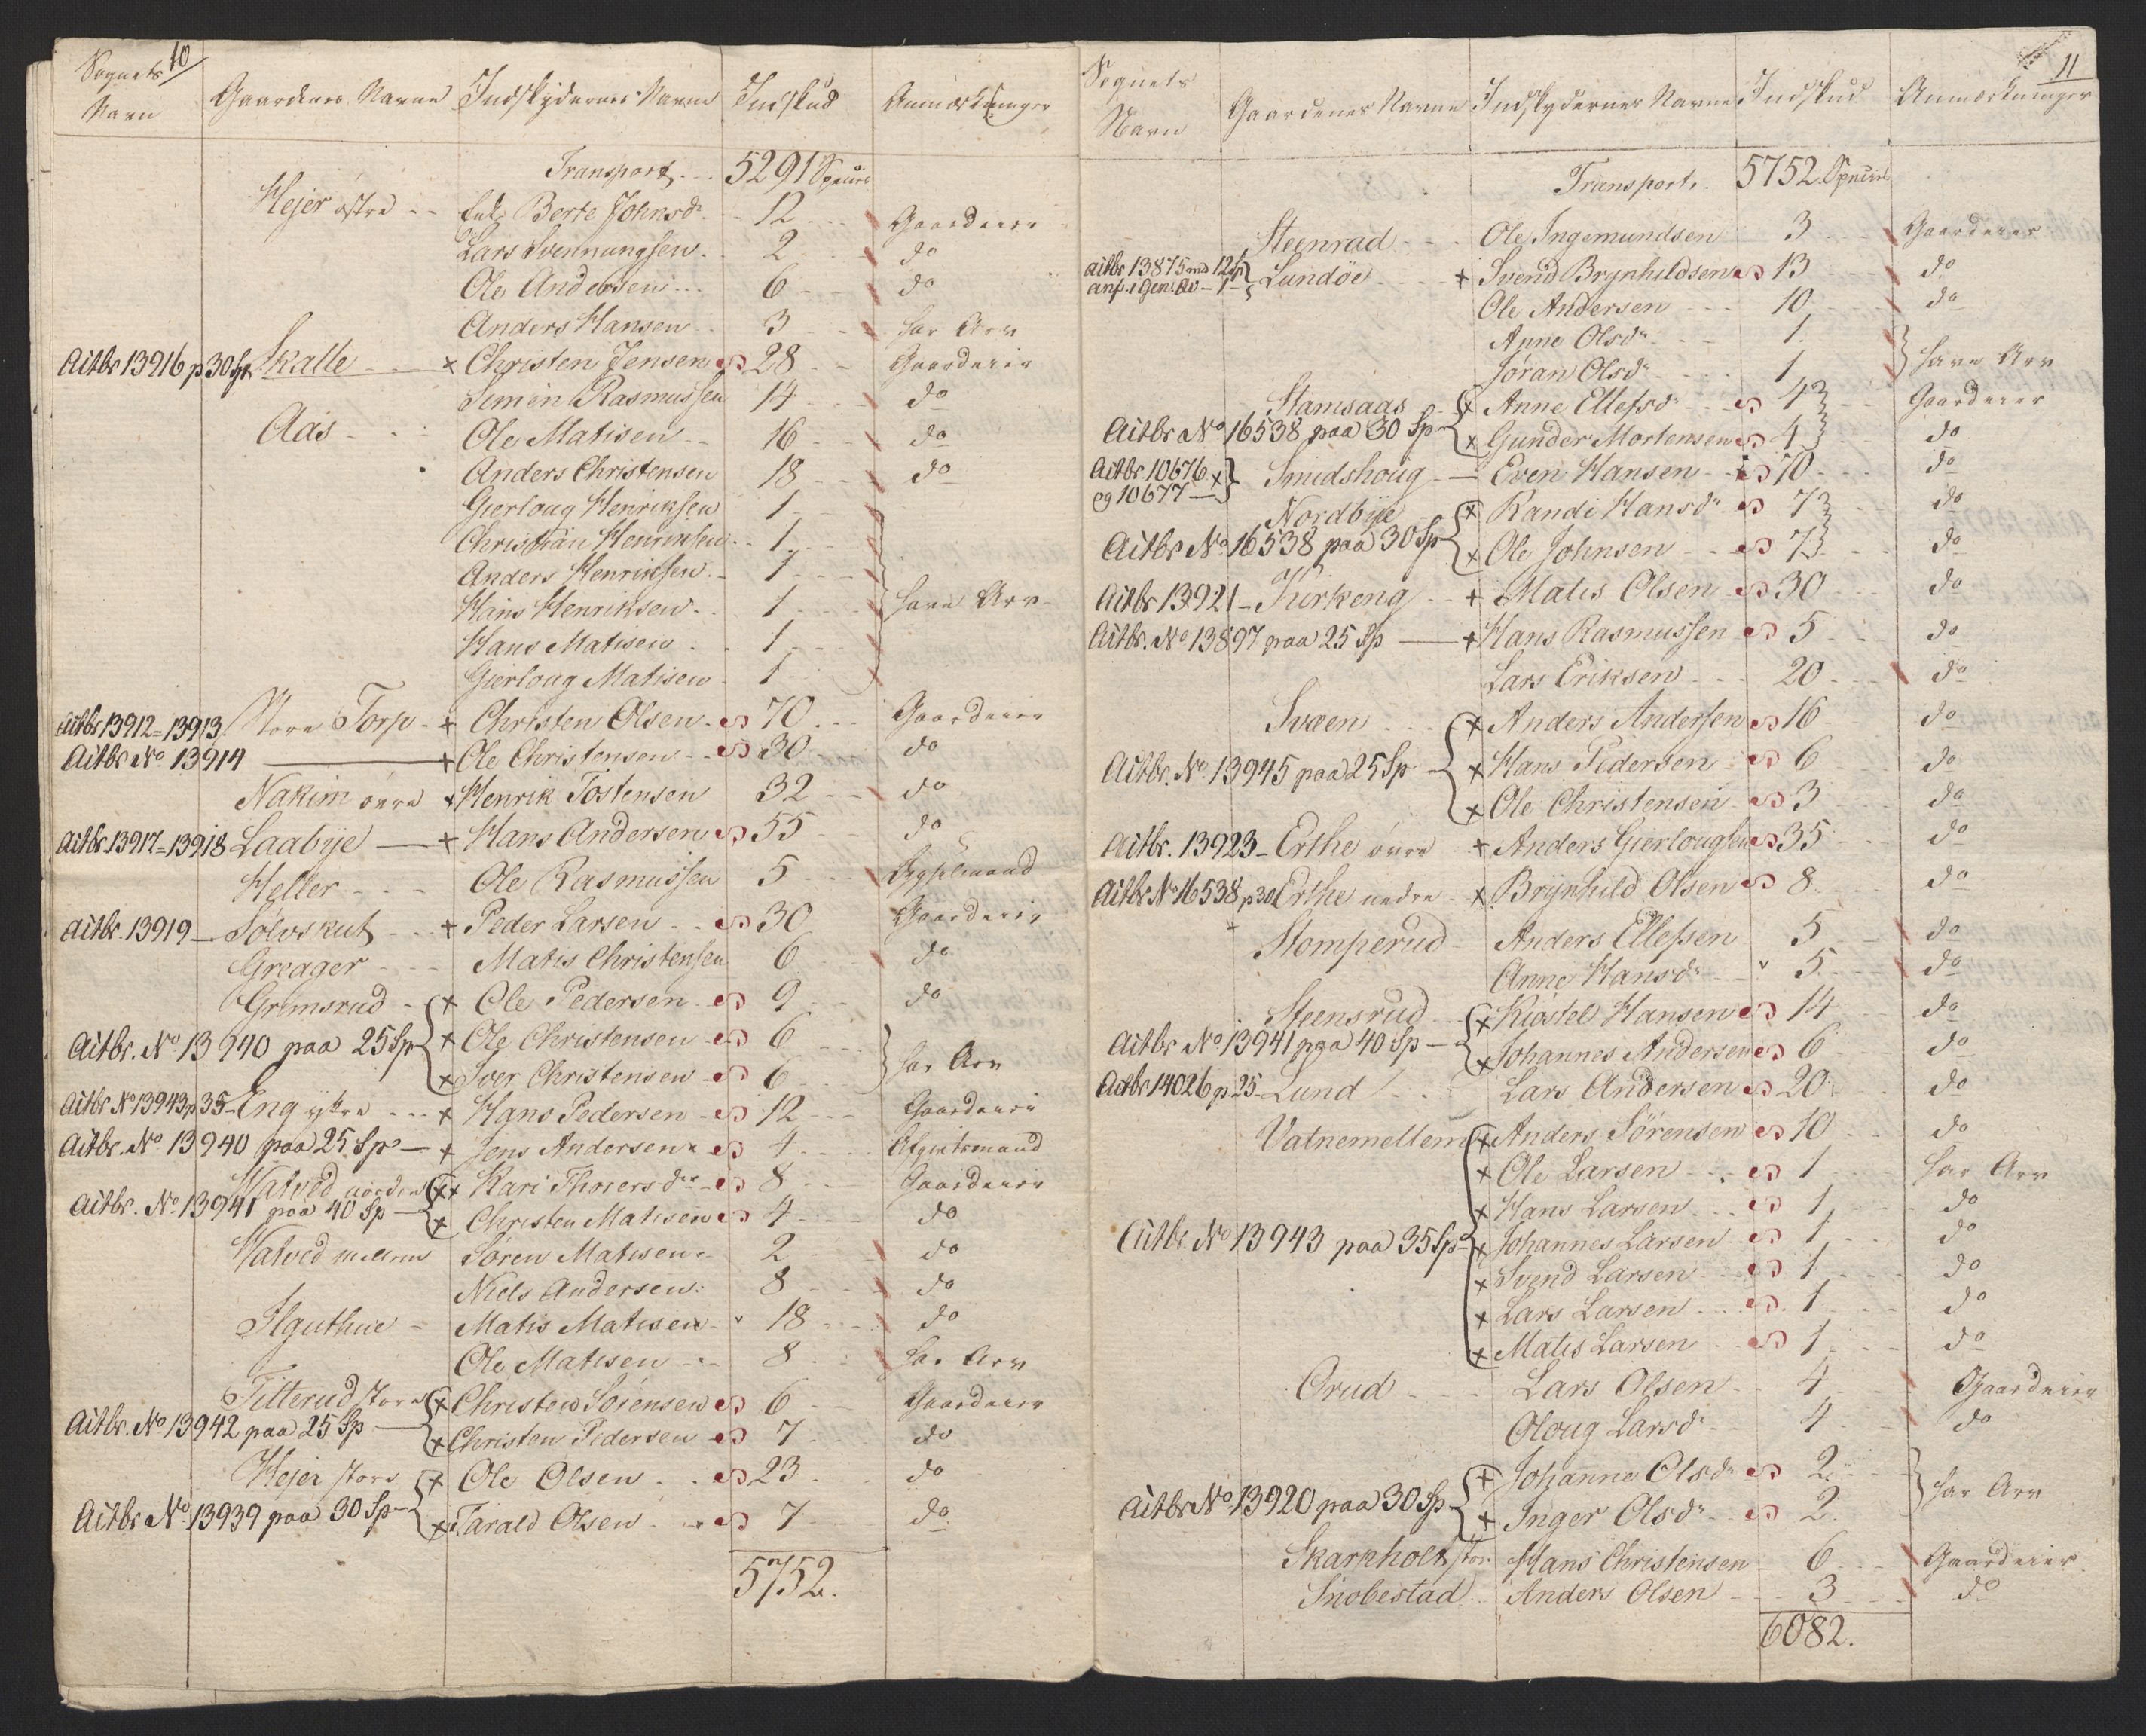 10
Sognets Navn Gaardenes Navne Indskydernes Navne Indskud Anmærkninger
Transport 5291 Species
Hejer østre Enke Berte Johnsdr 12 Gaardeier
Lars Svennungsen 2 do
Ole Andersen 6 do
Anders Hansen 3 har Arv
Actbr 13916 p 30 Sp Skalle x Christen Jensen 28 Gaardeier
Simen Rasmussen 14 do
Aas Ole Matisen 16 do
Anders Christensen 18 do
Gierloug Henriksen 1
Christian Henriksen 1
Anders Henriksen 1
Hans Henriksen 1 } have Arv
Hans Matisen 1
Gierloug Matisen 1
Actbr 13912=13913 Store Torp + Christen Olsen 70 Gaardeier
Actbr No 13914 + Ole Christensen 30 do
Nakim övre x Henrik Tostensen 32 do
Actbr 13917=13918 Laabÿe + Hans Andersen 55 do
Heller Ole Rasmussen 5 Bygselmand
Actbr. 13919 Sölvskut + Peder Larsen 30 Gaardeier
Greager Matis Christensen 6 do
Grimsrud x Ole Pedersen 9 do
Actbr. No 13940 paa 25 Sp x Ole Christensen 6
x Iver Christensen 6 } har Arv
Actbr No 13943 p 35 Eng ÿtre x Hans Pedersen 12 Gaardeier
Actbr. No 13940 paa 25 Sp + Jens Andersen 4 Afgivtsmand
Watved nordre x Kari Thorersdr 8 Gaardeier
Actbr. No 13941 paa 40 Sp x Christen Matisen 4 do
Watved mellem Sören Matisen 2 do
Niels Andersen 8 do
Ilguthue Matis Matisen 18 do
Ole Matisen 8 har Arv
Titterud store x Christen Sörensen 6 Gaardeier
Actbr. No 13942 paa 25 Sp x Christen Pedersen 7 do
Hejer store x Ole Olsen 23 do
Actbr No 13939 paa 30 Sp x Tarald Olsen 7 do
5752.
11
Sognets Navn Gaardenes Navne Indskydernes Navne Indskud Anmærkninger
Transport. 5752. Species
Steenrad Ole Ingemundsen 3 Gaardeier
Actbr 13875 med 12 Sp Lundöe + Svend Brynhildsen 13 do
anf. i Gen. Bo 1
Ole Andersen 10 do
Anne Olsdr 1
Jøran Olsdr 1 } have Arv
Stamsaas x Anne Ellefsdr 4 Gaardeier
Actbr No 16538 paa 30 Sp x Gunder Mortensen 4 do
Actbr 10676 x } Smidshoug Even Hansen 70 do
og 10677
Nordbÿe x Randi Hansdr 7 do
Actbr No 16538 paa 30 Sp x Ole Johnsen 7 do
Actbr 13921 Kirkeng + Matis Olsen 30 do
Actbr. No 13897 paa 25 Sp + Hans Rasmussen 5 do
Lars Eriksen 20 do
Svaen x Anders Andersen 16 do
Actbr. No 13945 paa 25 Sp x Hans Pedersen 6 do
x Ole Christensen 3 do
Actbr. 13923 Erthe övre + Anders Gierlougsen 35 do
Actbr No 16538 p 30 Erthe nedre x Brÿnhild Olsen 8 do
Stomperud Anders Ellefsen 5 do
Anne Hansdr 5 do
Steensrud x Kiøstel Hansen 14 do
Actbr No 13941 paa 40 Sp x Johannes Andersen 6 do
Actbr 14026 p. 25 Lund Lars Andersen 20 do
Vatnemellem x Anders Sörensen 10 do
x Ole Larsen 1 har Arv
x Hans Larsen 1 do
Actbr. No 13943 paa 35 Sp x Johannes Larsen 1 do
x Svend Larsen 1 do
x Lars Larsen 1 do
x Matis Larsen 1 do
Orud Lars Olsen 4 Gaardeier
Oloug Larsdr 4 do
+ Johanne Olsdr 2
Actbr No 13920 paa 30 Sp x Inger Olsdr 2 } har Arv
Skarpholt stor Hans Christensen 6 Gaardeier
Snobestad Anders Olsen 3 do
6082.